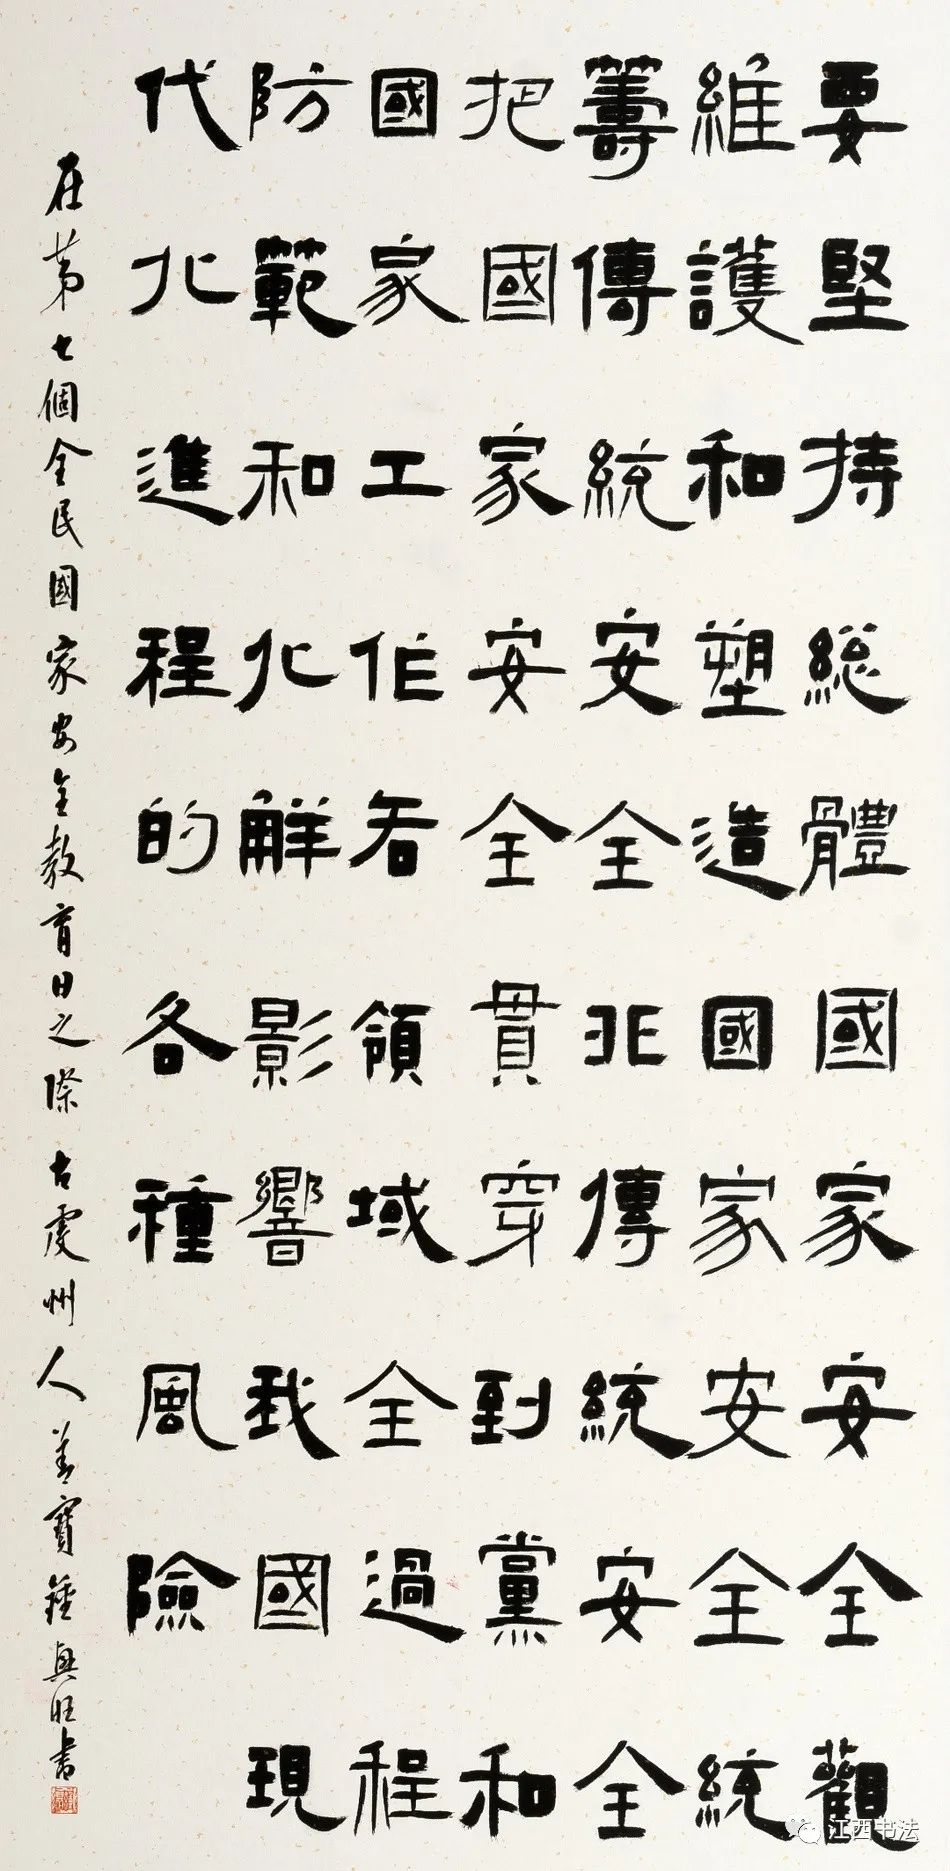 要堅持総體國家安全觀
維護和塑造國家安全統
籌傳統安全非傳統安全
把國家安全貫穿到黨和
國家工作各領域全過程
防範和化解影響我國現
代化進程的各種風險
在第七個全民國家安全教育日之際古虔州人善寶鍾興旺書
江西书法